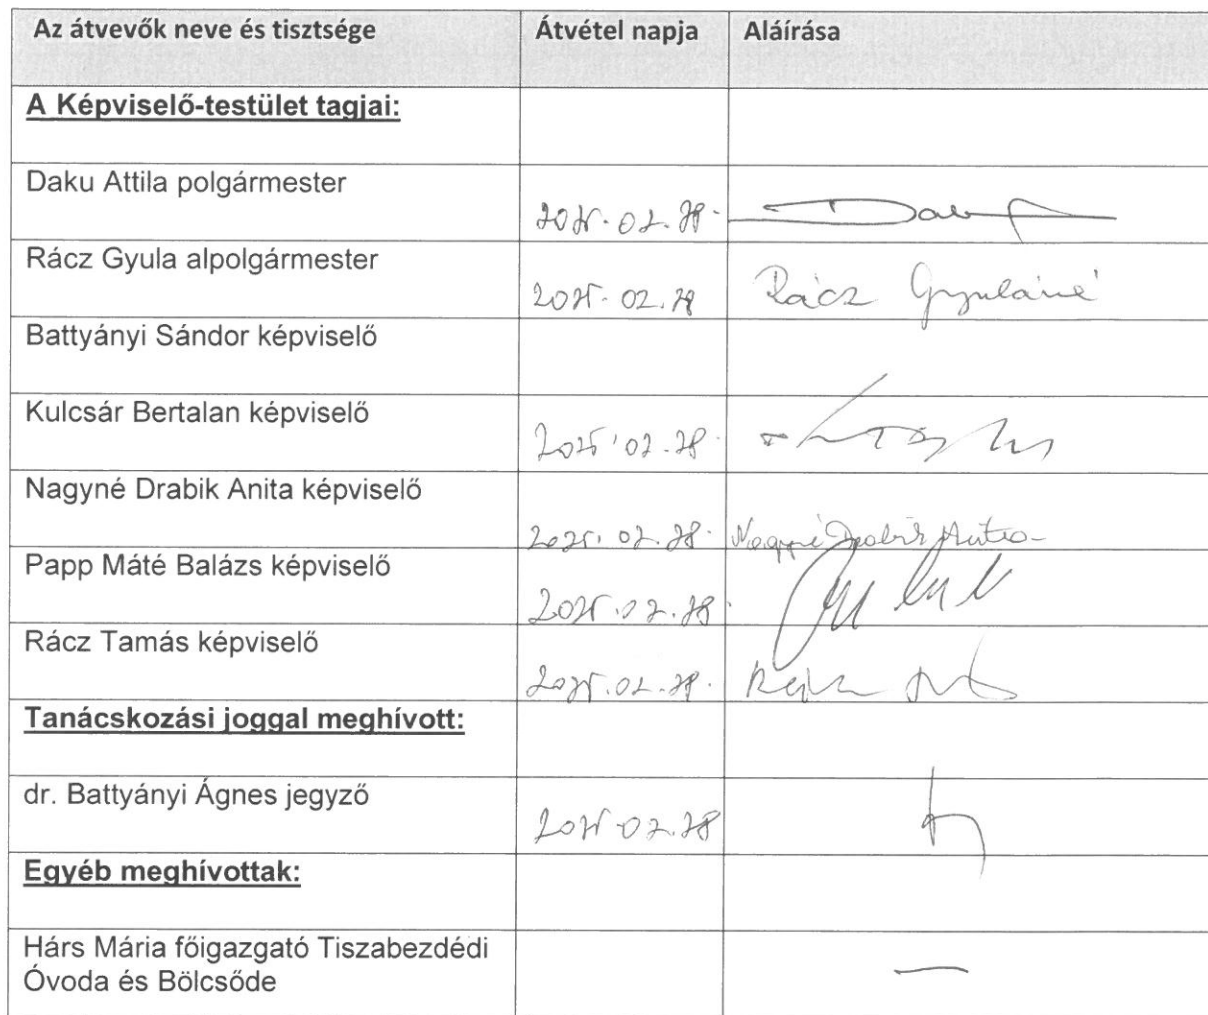 Az átvevők neve és tisztsége Átvétel napja Aláírása
A Képviselő-testület tagjai:
Daku Attila polgármester
2025.02.28.
Rácz Gyula alpolgármester
2025.02.28 Rácz Gyuláné
Battyányi Sándor képviselő
Kulcsár Bertalan képviselő
2025.02.28.
Nagyné Drabik Anita képviselő
2025.02.28. Nagyné Drabik Anita
Papp Máté Balázs képviselő
2025.02.28.
Rácz Tamás képviselő
2025.02.28.
Tanácskozási joggal meghívott:
dr. Battyányi Ágnes jegyző
2025.02.28
Egyéb meghívottak:
Hárs Mária főigazgató Tiszabezdédi
Óvoda és Bölcsőde
—